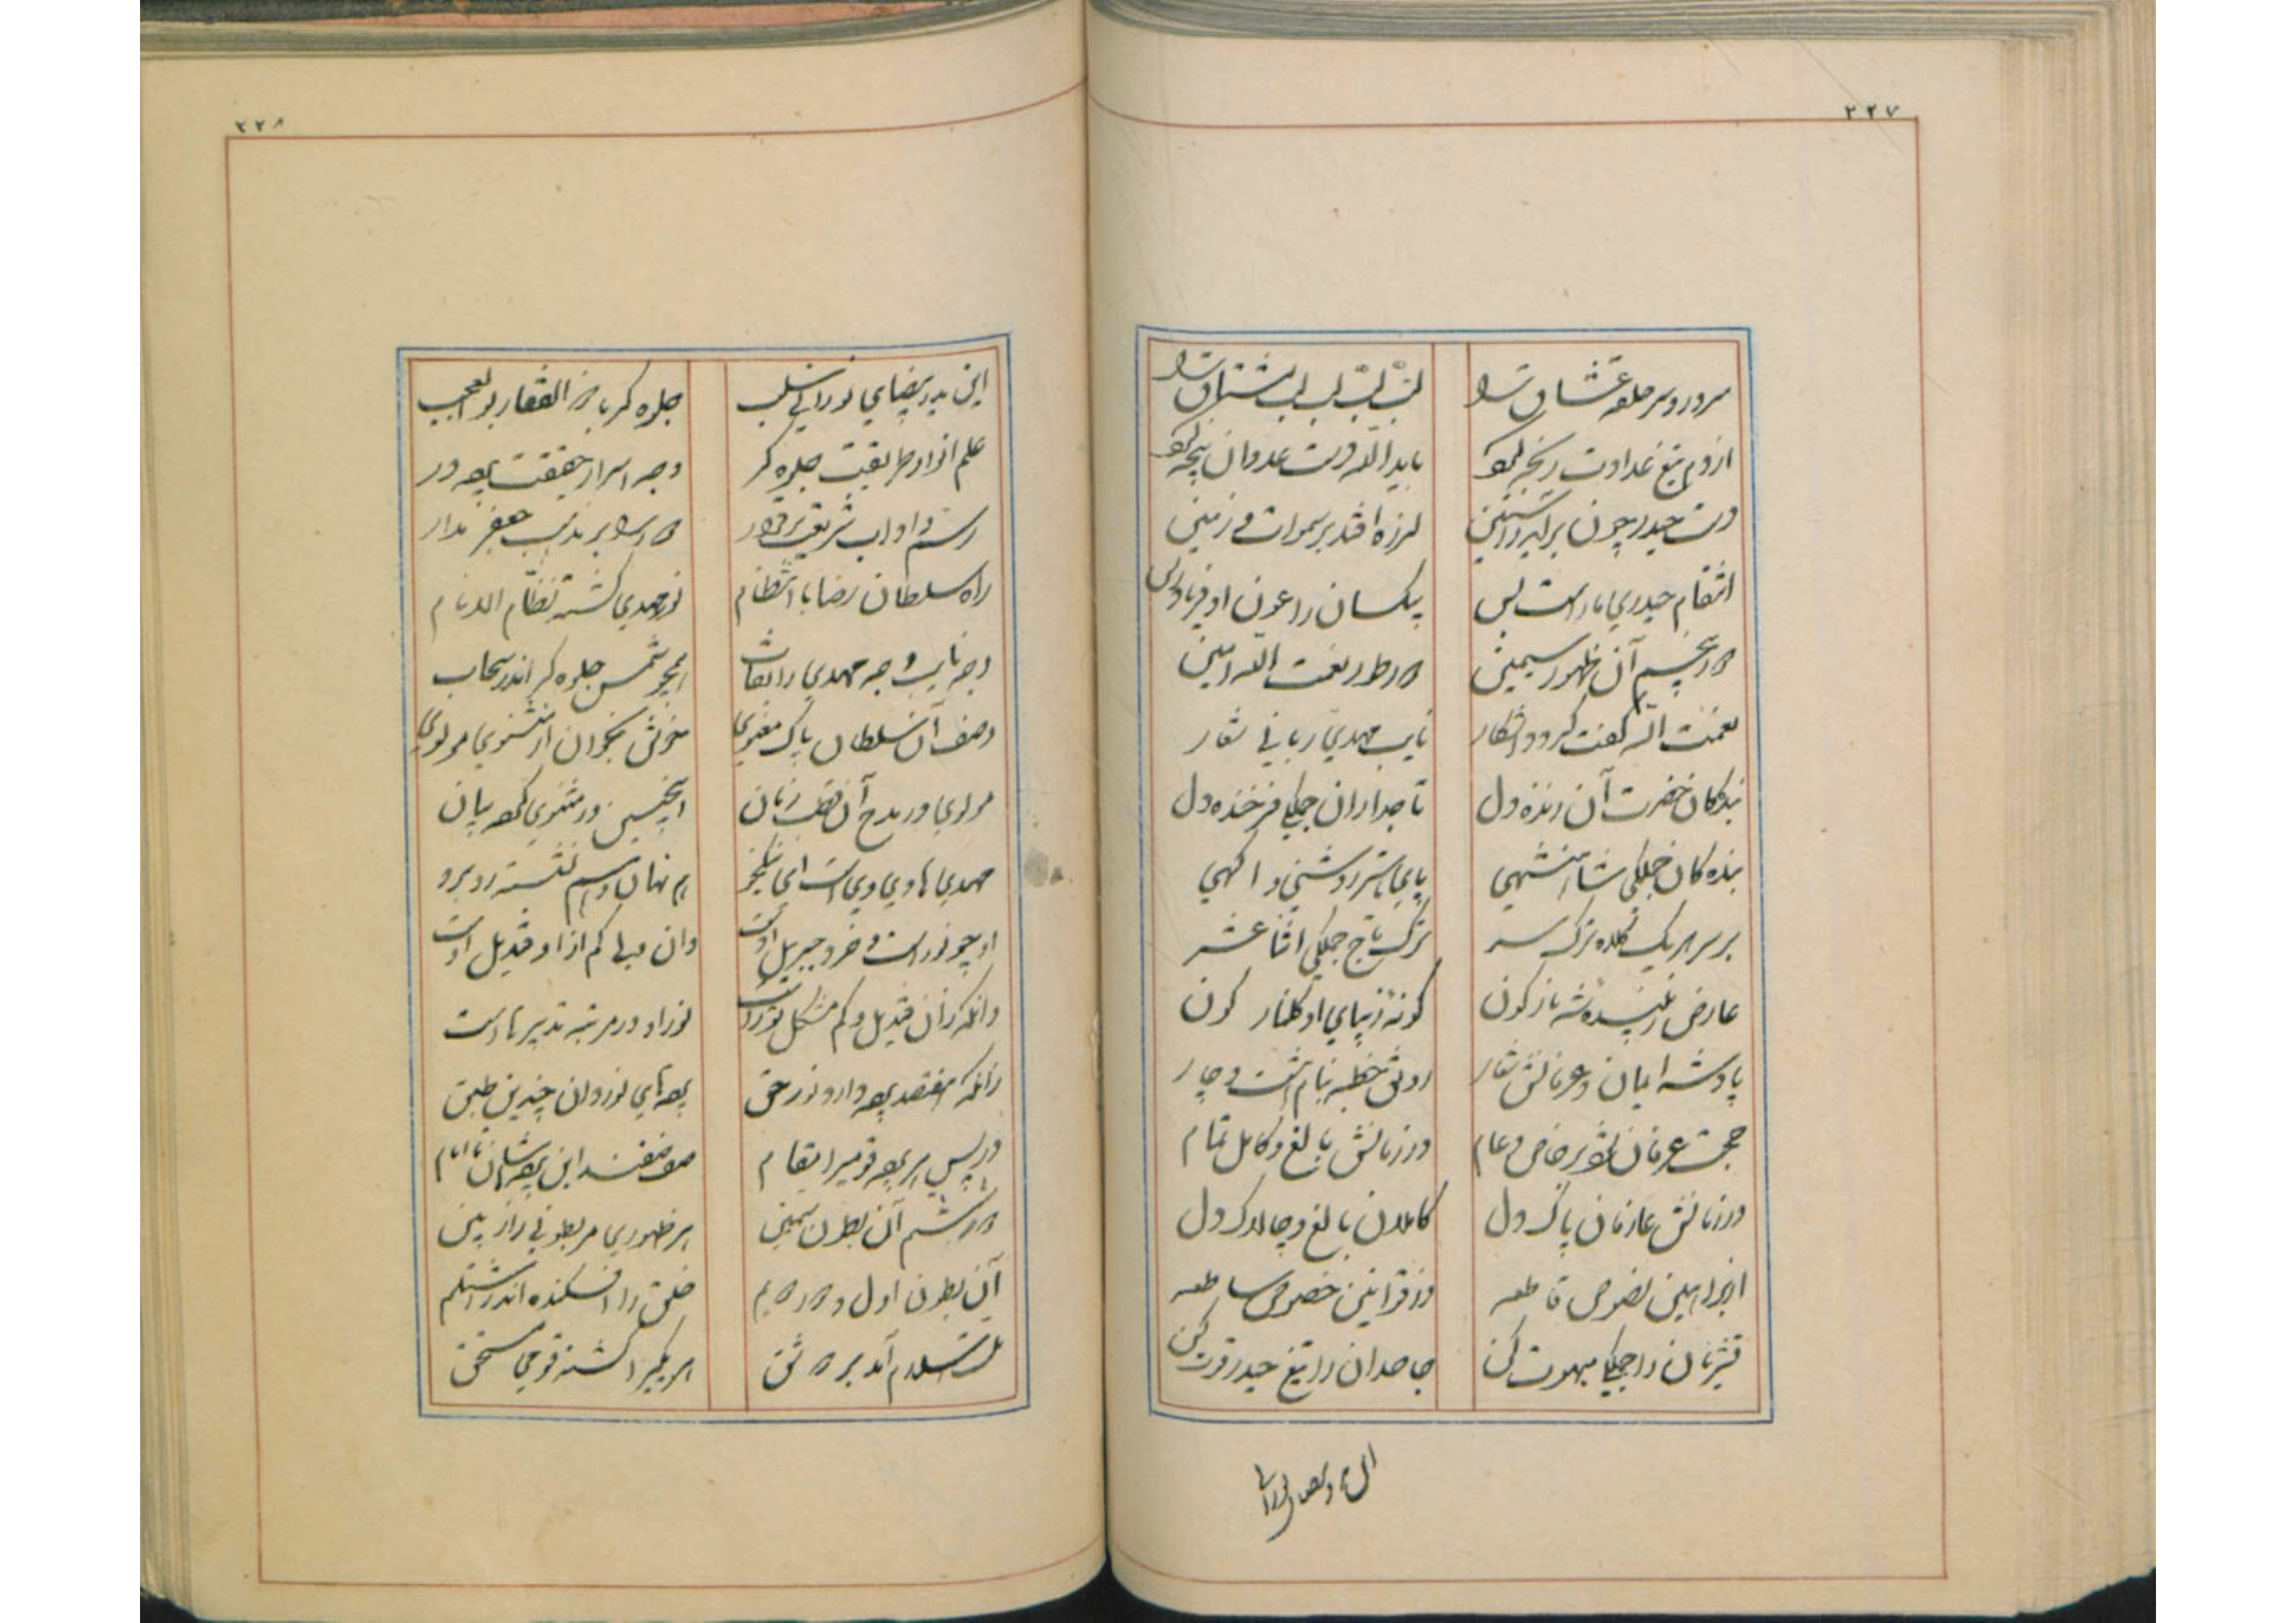 ۲۲۷
سرور و سر حلقه عشاق شد لب لب لب لب مشتاق شد
از دم تیغ عداوت رنجه با یدالله دست عدوان پنجه
دست حیدر چون برآید ز آستین لرزه افتد بر سموات و زمین
انتقام حیدری ما را است بس بیکسان را عون او فریادرس
آن ظهور سیمین در طور نعمت الله امین
نعمت الله گفت گردد آشکار نایب مهدی ربانی شعار
بندگان حضرت آن زنده دل تاجداران جملگی فرخنده دل
بنده کان جملگی شاهنشهی پای تا سر روشنی و اگهی
بر سر هر یک کلاه ترک سر ترک تاج جملگی اثنا عشر
عارض رخشنده شه بازگون گونه زیبای او گلنار گون
پادشه ایمان و عرفانش شعار رونق خطبه بنام هشت و چار
حجت عرفان بر خاص و عام در زمانش بالغ و کامل تمام
در زمانش عارفان پاک دل کاملان بالغ و چالاک دل
از براهین نصوص قاطعه وز قوانین خصوص ساطعه
قشریان را جملگی مبهوت کن جاحدان را تیغ حیدر قوت کن
۲۲۸
این ید بیضای نورانی سلب جلوه گر با ذوالفقار بوالعجب
علم انوار طریقت جلوه گر وجه اسرار حقیقت پرده در
رسم و آداب شریعت برقرار بر مذهب جعفر مدار
راه سلطان رضا با انتظام نور مهدی گشته نظام الانام
وجه نایب وجه مهدی را نقاب همچو شمس جلوه گر اندر سحاب
وصف آن سلطان پاک معنوی خوش بخوان از مثنوی مولوی
مولوی در مدح آن قطب زمان اینچنین در مثنوی کرده بیان
مهدی و هادی وی است ای نیکخو هم نهان و هم نشسته روبرو
او چو نور است و خرد جبریل اوست وان ولی کم از او قندیل اوست
وانکه زان قندیل کم مشکات نور او در مرتبه تدبیر ماست
زانکه هفتصد پرده دارد نور حق پرده های نور دان چندین طبق
در پس هر پرده قومی را مقام صف صفند این پرده هاشان تا امام
آن بطون سیمین هر ظهوری هر بطونی راز بین
آن بطون اول خلق را افکنده اندر اشتلم
هر یکی را گشته قومی مستحق